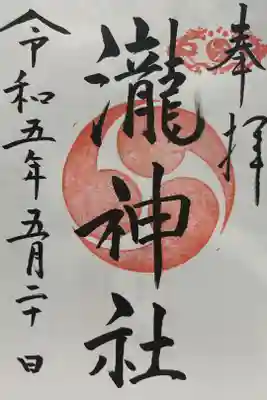 奉拝
瀧神社
令和五年五月二十日